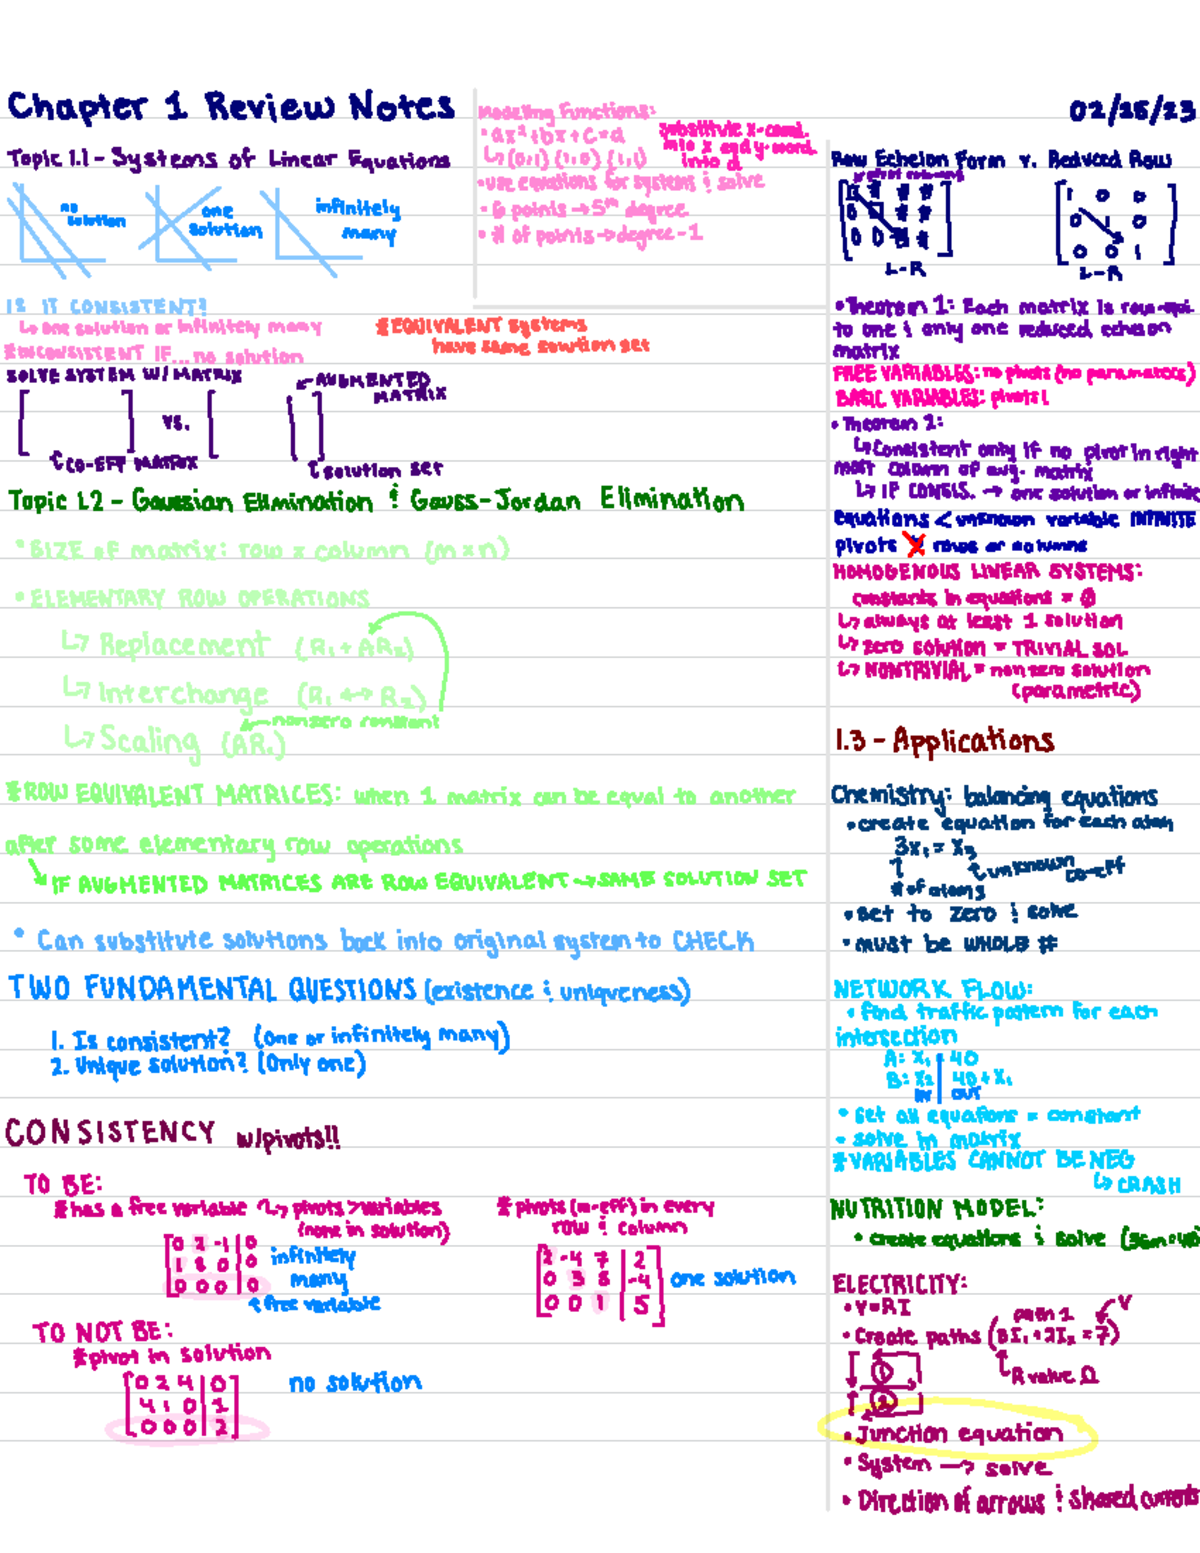 Chapter 1 Review Notes
02/25/23
Topic 1.1 - Systems of Linear Equations
no solution
one solution
infinitely many
IS IT CONSISTENT?
↳ one solution or infinitely many
*INCONSISTENT IF... no solution
*EQUIVALENT systems
have same solution set
SOLVE SYSTEM W/ MATRIX
[ ] vs. [ | ]
CO-EFF MATRIX
AUGMENTED MATRIX
solution set
Modeling Functions:
• ax²+bx+c=d
↳ (0,1) (1,0) (1,1)
substitute x-coord.
into x and y-coord.
into d
• use equations for systems & solve
• 6 points → 5th degree
• # of points → degree - 1
Topic 1.2 - Gaussian Elimination & Gauss-Jordan Elimination
• SIZE of matrix: row x column (m x n)
• ELEMENTARY ROW OPERATIONS
↳ Replacement (R₁ + AR₂)
↳ Interchange (R₁ ↔ R₂)
← nonzero constant
↳ Scaling (AR₁)
*ROW EQUIVALENT MATRICES: when 1 matrix can be equal to another
after some elementary row operations
↘ IF AUGMENTED MATRICES ARE ROW EQUIVALENT → SAME SOLUTION SET
• Can substitute solutions back into original system to CHECK
TWO FUNDAMENTAL QUESTIONS (existence & uniqueness)
1. Is consistent? (One or infinitely many)
2. Unique solution? (Only one)
CONSISTENCY w/pivots!!
TO BE:
*has a free variable ↳ pivots > variables
(none in solution)
0 2 -1 | 0
1 8 0 | 0
0 0 0 | 0
infinitely
many
↑ free variable
*pivots (co-eff) in every
row & column
2 -4 7 | 2
0 3 8 | -4
0 0 1 | 5
one solution
TO NOT BE:
*pivot in solution
0 2 4 | 0
4 1 0 | 1
0 0 0 | 2
no solution
Row Echelon Form v. Reduced Row
L-R
1 0 0
0 0
0 0 1
L-R
• Theorem 1: Each matrix is row-equi.
to one & only one reduced echelon
matrix
FREE VARIABLES: no pivots (no parameters)
BASIC VARIABLES: pivots!
• Theorem 2:
↳ Consistent only if no pivot in right
most column of aug. matrix
↳ IF CONSIS. → one solution or infinite
equations < unknown variable INFINITE
pivots rows or columns
HOMOGENOUS LINEAR SYSTEMS:
constants in equations = 0
↳ always at least 1 solution
↳ zero solution = TRIVIAL SOL
↳ NONTRIVIAL = nonzero solution
(parametric)
1.3 - Applications
Chemistry: balancing equations
• create equation for each atom
3x₁ = x₃
↑ # of atoms
unknown co-eff
• set to zero & solve
• must be WHOLE #
NETWORK FLOW:
• find traffic pattern for each
intersection
A: x₁ | 40
B: x₂ | 40 + x₁
IN | OUT
• Set all equations = constant
• solve in matrix
*VARIABLES CANNOT BE NEG
↳ CRASH
NUTRITION MODEL:
• create equations & solve
ELECTRICITY:
• V=RI
path 1
V
• Create paths (3I₁ + 2I₂ = 7)
R value Ω
1
2
• Junction equation
• System → solve
• Direction of arrows & shared currents